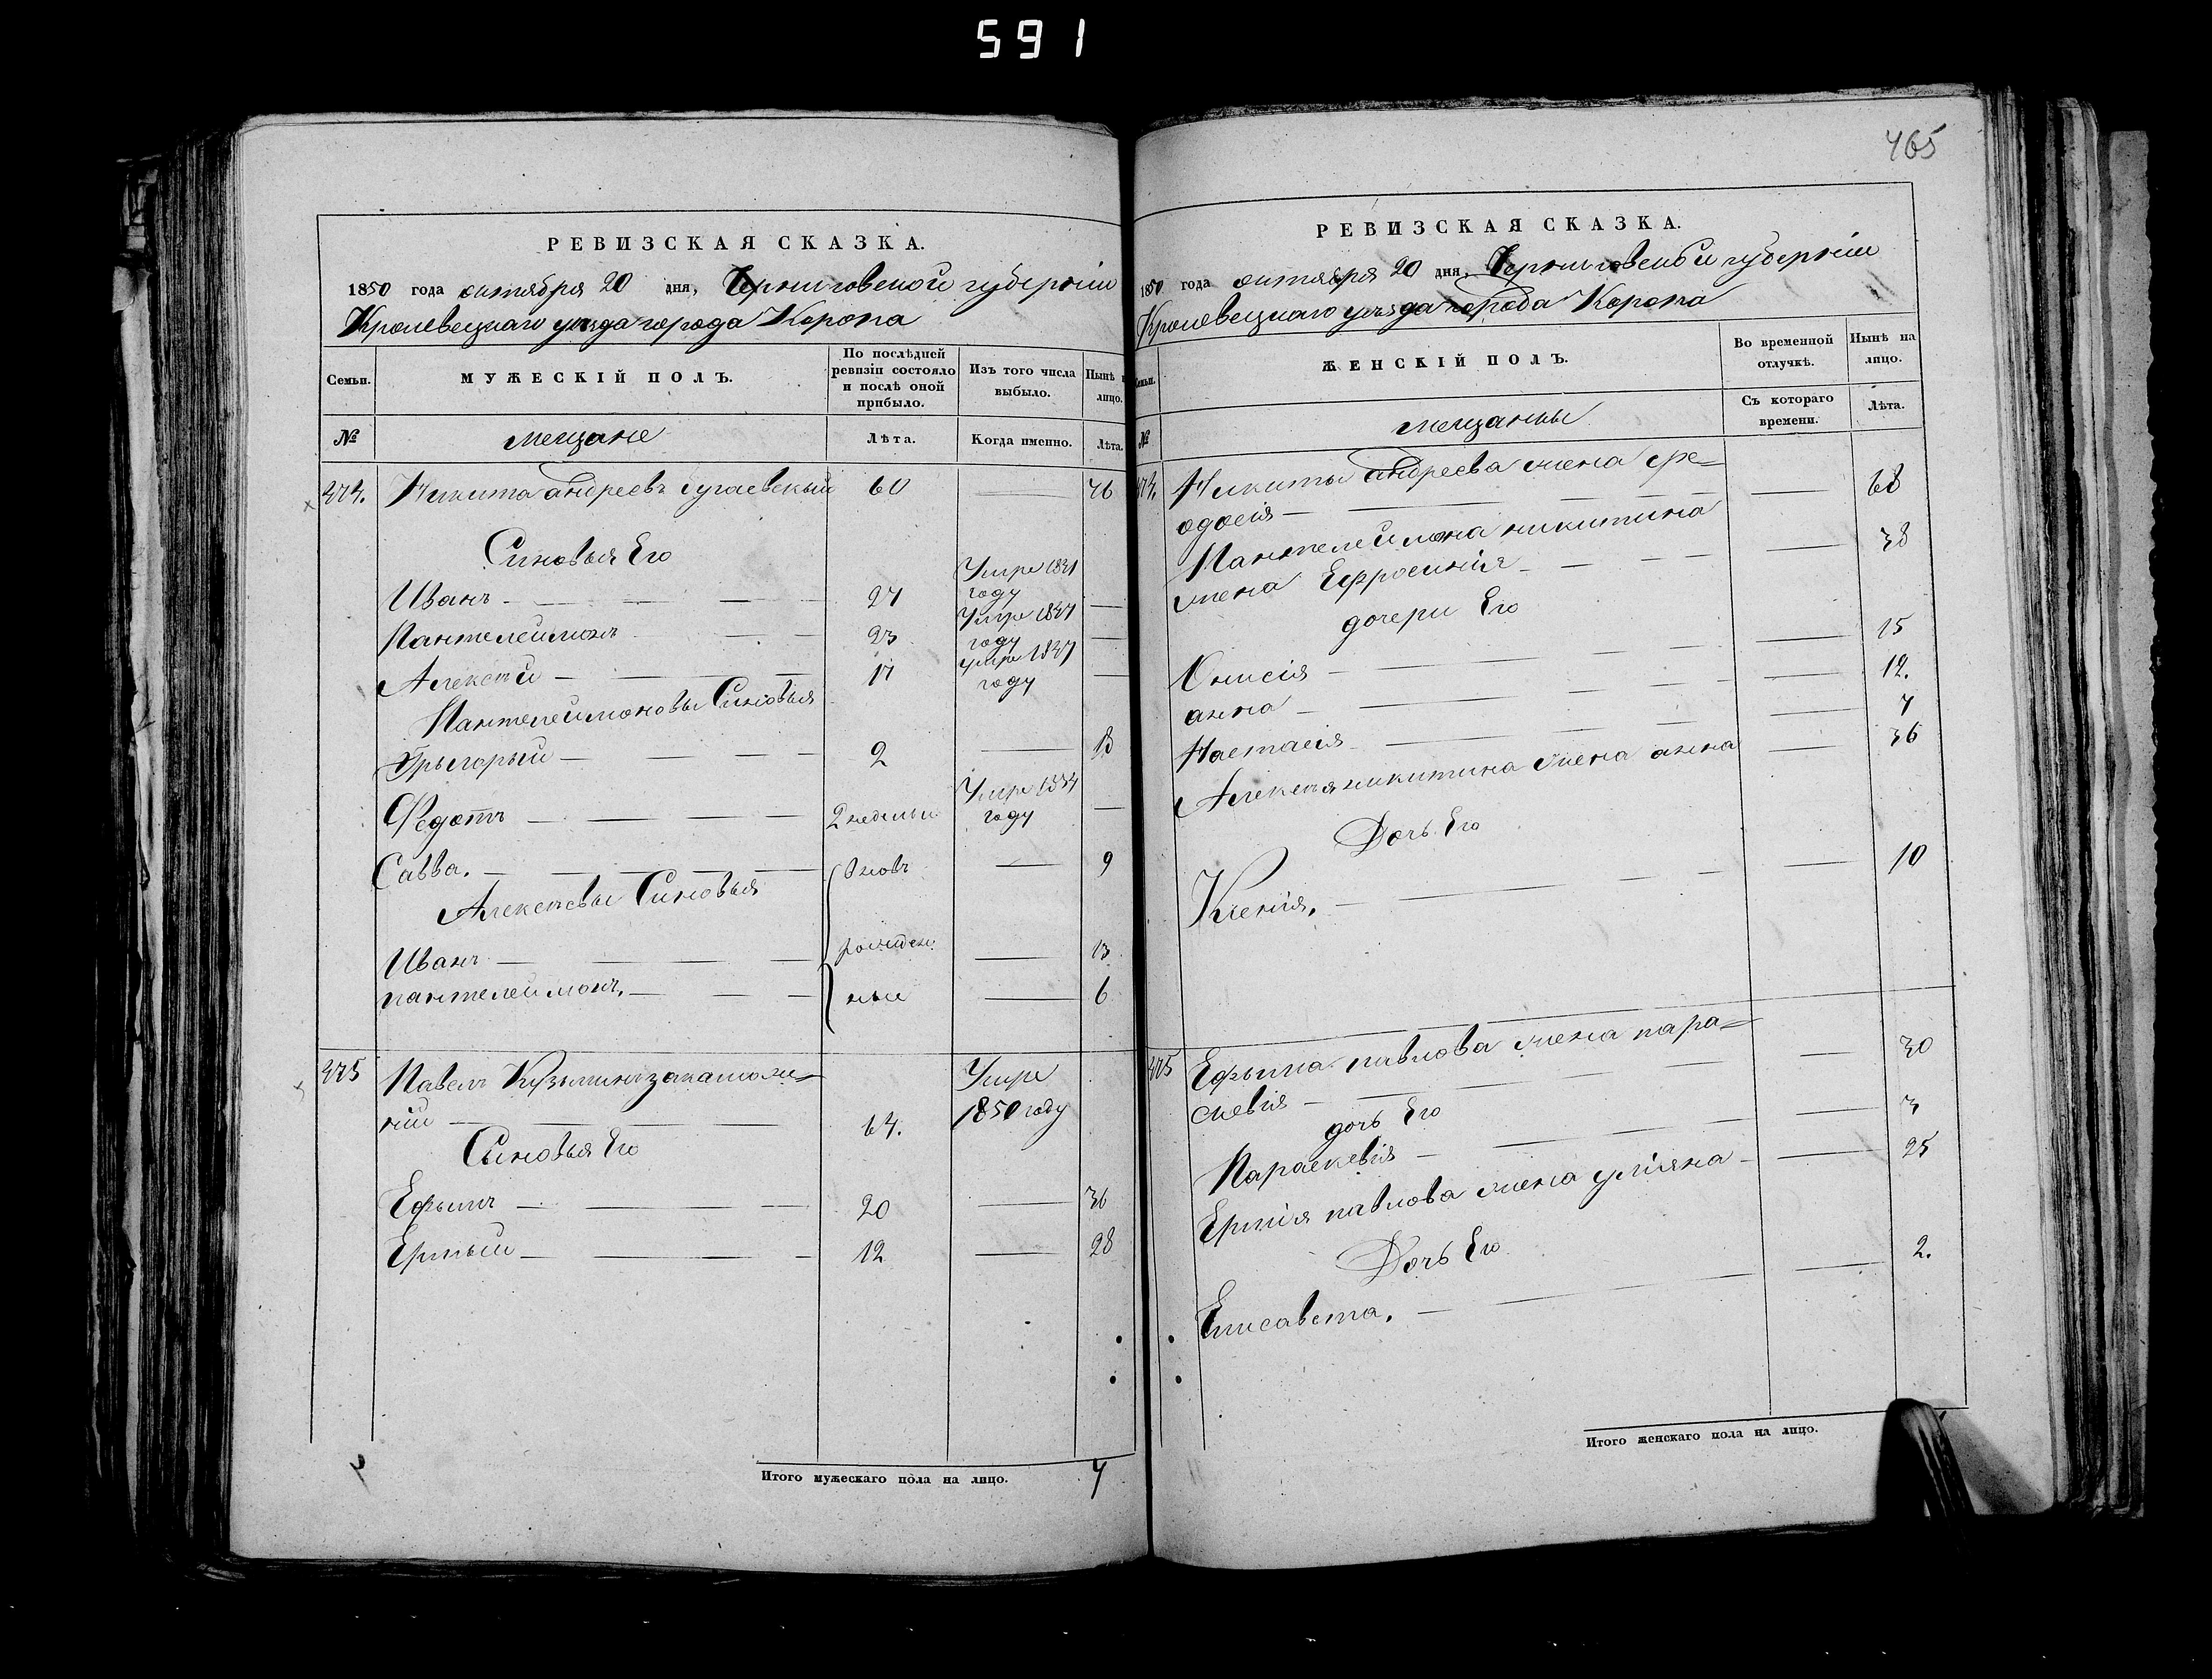 591
465
РЕВИЗСКАЯ СКАЗКА.
1850 года октября 20 дня, Черниговской губернiи
Кролевецкаго уезда города Коропа
Семьи.
МУЖЕСКIЙ ПОЛЪ.
По послѣдней ревизiи состояло и послѣ оной прибыло.
Изъ того числа выбыло.
Нынѣ лицо.
№
мещане
Лѣта.
Когда именно.
Лѣта.
Никита андреевъ 60 — 76
Синовья Его
Иванъ — 27 Умре 1841 году —
Пантелеимонъ — 23 Умре 1847 году —
Алексѣй — 17 умре 1847 году —
Пантелеимоновы Синовья
Грыгорый — 2 — 18
Федотъ — 2 недельи Умре 1834 году —
Савва. — вновь — 9
Алексѣевы Синовья
Иванъ — рожден — 13
пантелеимонъ. — ные — 6
375 Павелъ Кузьминъ
нiй — 64. Умре 1850 году
Сыновья Его
Ефымъ — 20 — 36
Ермый — 12 — 28
Итого мужескаго пола на лицо. 7
РЕВИЗСКАЯ СКАЗКА.
1850 года октября 20 дня, Черниговской губернiи
Кролевецкаго уезда города Коропа
ЖЕНСКIЙ ПОЛЪ.
Во временной отлучкѣ.
Нынѣ на лицо.
№
мещанки
Съ котораго времени.
Лѣта.
Никиты андреева жена фе=
одосiя — — 68
Пантелеимона никитина
жена Ефросинiя — — 38
дочери Его
Онисiя — — 15
анна — — 12.
Настасiя — — 7
Алексѣя никитина жена анна — 36
Дочь Его
Ксенiя. — — 10
375 Ефыма павлова жена пара=
скевiя — — 30
дочь Его
Параскевiя — — 3
Ермiя павлова жена улiяна — — 25
Дочь Его
Елисавета. — — 2.
Итого женскаго пола на лицо.